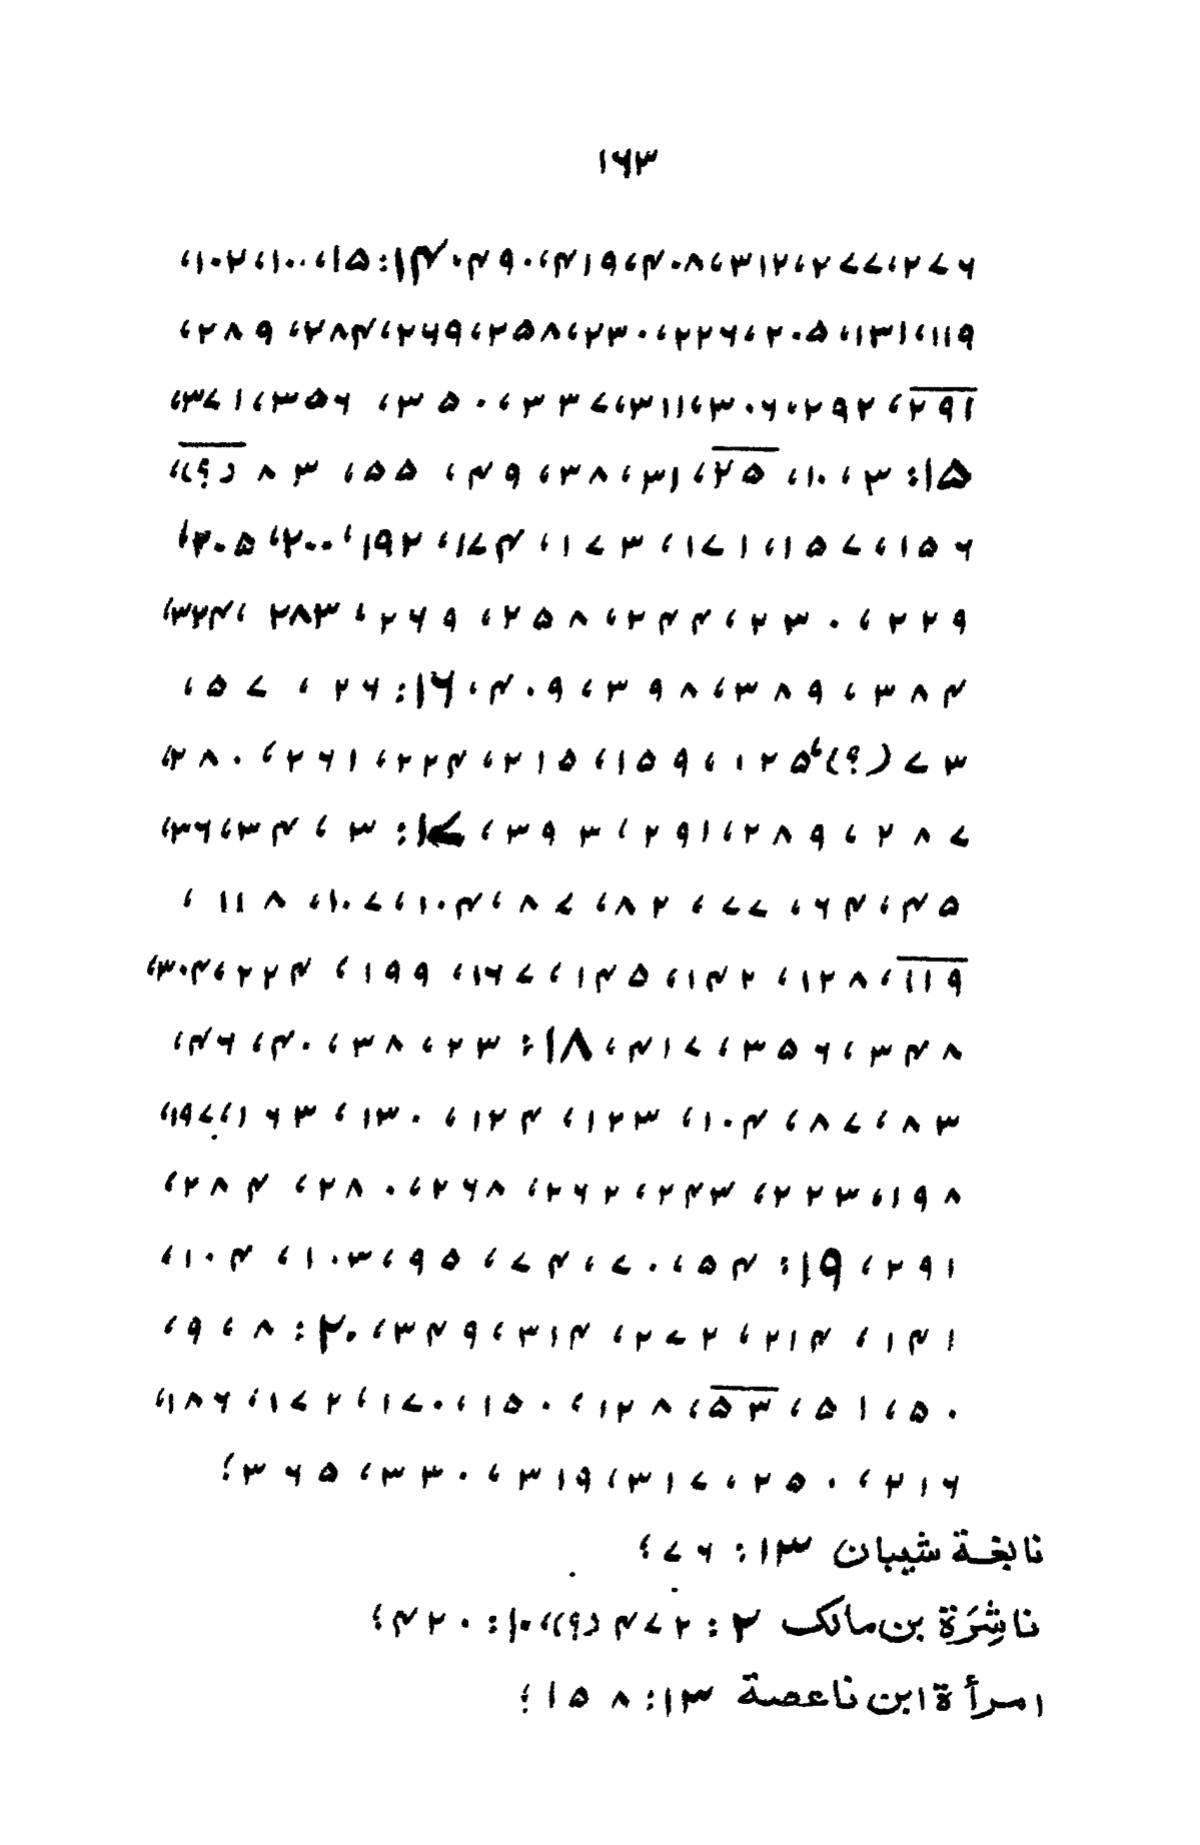 ١٦٣
٢٧٦، ٢٧٧، ٣١٢، ٤٠٨، ٤١٩، ٤٩٠، ١٤: ١٥، ١٠٠، ١٠٢،
١١٩، ١٣١، ٢٠٥، ٢٢٦، ٢٣٠، ٢٥٨، ٢٦٩، ٢٨٤، ٢٨٩،
٢٩١، ٢٩٢، ٣٠٦، ٣١١، ٣٣٧، ٣٥٠، ٣٥٦، ٣٧١،
١٥: ٣، ١٠، ٢٥، ٣١، ٣٨، ٤٩، ٥٥، ٨٣ (؟)،
١٥٦، ١٥٧، ١٧١، ١٧٣، ١٧٤، ١٩٢، ٢٠٠، ٢٠٥،
٢٢٩، ٢٣٠، ٢٤٤، ٢٥٨، ٢٦٩، ٢٨٣، ٣٢٤،
٣٨٤، ٣٨٩، ٣٩٨، ٤٠٩، ١٦: ٢٦، ٥٧،
٧٣ (؟)، ١٢٥، ١٥٩، ٢١٥، ٢٢٤، ٢٦١، ٢٨٠،
٢٨٧، ٢٨٩، ٢٩١، ٣٩٣، ١٧: ٣، ٣٤، ٣٦،
٤٥، ٦٤، ٧٧، ٨٢، ٨٧، ١٠٤، ١٠٧، ١١٨،
١١٩، ١٢٨، ١٤٢، ١٤٥، ١٦٧، ١٩٩، ٢٢٤، ٣٠٤،
٣٤٨، ٣٥٦، ٤١٧، ١٨: ٢٣، ٣٨، ٤٠، ٤٦،
٨٣، ٨٧، ١٠٤، ١٢٣، ١٢٤، ١٣٠، ١٦٣، ١٩٧،
١٩٨، ٢٢٣، ٢٤٣، ٢٦٢، ٢٦٨، ٢٨٠، ٢٨٤،
٢٩١، ١٩: ٥٤، ٧٠، ٧٤، ٩٥، ١٠٣، ١٠٤،
١٤١، ٢١٤، ٢٧٢، ٣١٤، ٣٤٩، ٢٠: ٨، ٩،
٥٠، ٥١، ٥٣، ١٢٨، ١٥٠، ١٧٠، ١٧٢، ١٨٦،
٢١٦، ٢٥٠، ٣١٧، ٣١٩، ٣٣٠، ٣٦٥؛
نابغة شيبان ١٣: ٧٦؛
ناشِرَة بن مالك ٢: ٢٧٤ (؟)، ١٠: ٤٢٠؛
امرأة ابن ناعصة ١٣: ١٥٨؛